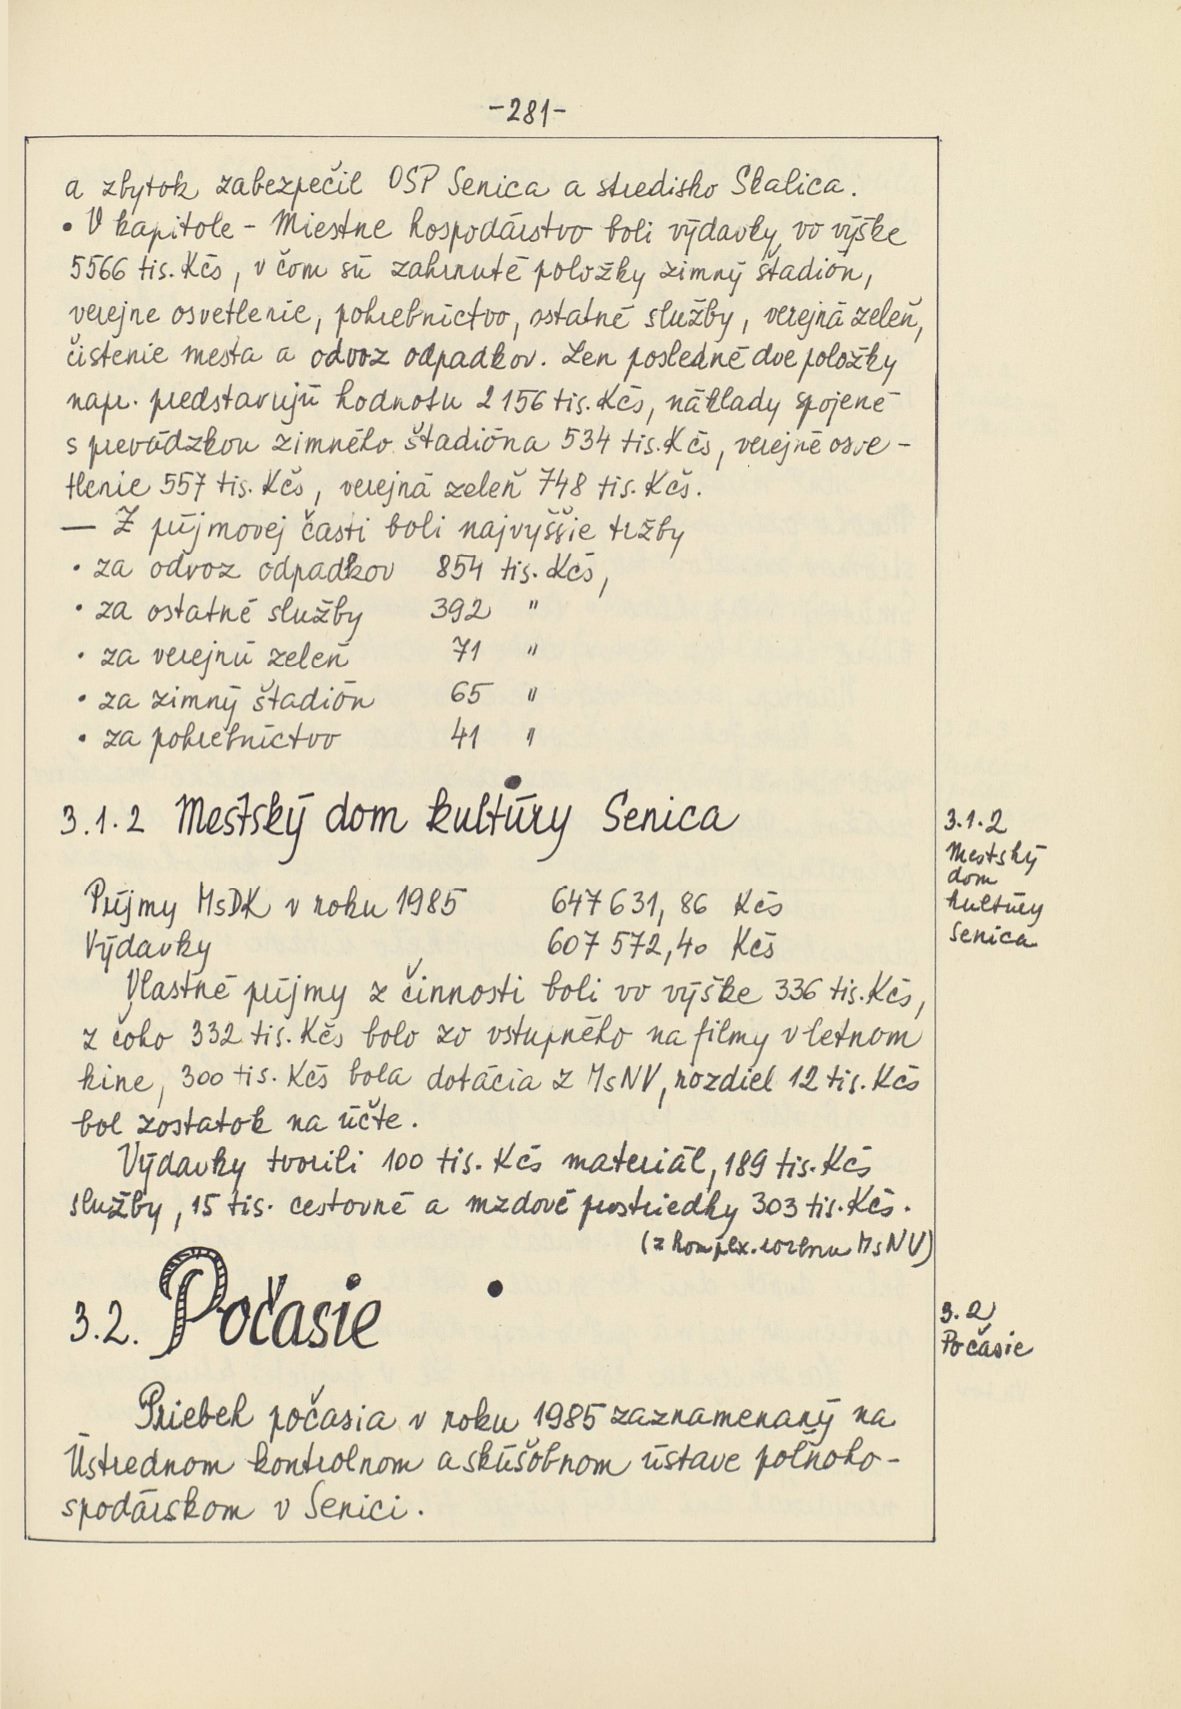 -281-
a zbytok zabezpečil OSP Senica a stredisko Skalica.
• V kapitole - Miestne hospodárstvo boli výdavky vo výške
5566 tis. Kčs, v čom sú zahrnuté položky zimný štadión,
verejne osvetlenie, pohrebníctvo, ostatné služby, verejná zeleň,
čistenie mesta a odvoz odpadkov. Len posledné dve položky
napr. predstavujú hodnotu 2 156 tis. Kčs, náklady spojené
s prevádzkou zimného štadióna 534 tis. Kčs, verejné osve-
tlenie 557 tis. Kčs, verejná zeleň 748 tis. Kčs.
— Z príjmovej časti boli najvyššie tržby
• za odvoz odpadkov 854 tis. Kčs,
• za ostatné služby 392 "
• za verejnú zeleň 71 "
• za zimný štadión 65 "
• za pohrebníctvo 41 "
3.1.2 Mestský dom kultúry Senica
3.1.2
Mestský
dom
kultúry
Senica
Príjmy MsDK v roku 1985 647 631,86 Kčs
Výdavky 607 572,40 Kčs
Vlastné príjmy z činnosti boli vo výške 336 tis. Kčs,
z čoho 332 tis. Kčs bolo zo vstupného na filmy v letnom
kine, 300 tis. Kčs bola dotácia z MsNV, rozdiel 12 tis. Kčs
bol zostatok na účte.
Výdavky tvorili 100 tis. Kčs materiál, 189 tis. Kčs
služby, 15 tis. cestovné a mzdové prostriedky 303 tis. Kčs.
(z komplex. rozboru MsNV)
3.2. Počasie
3.2
Počasie
Priebeh počasia v roku 1985 zaznamenaný na
Ústrednom kontrolnom a skúšobnom ústave poľnoho-
spodárskom v Senici.